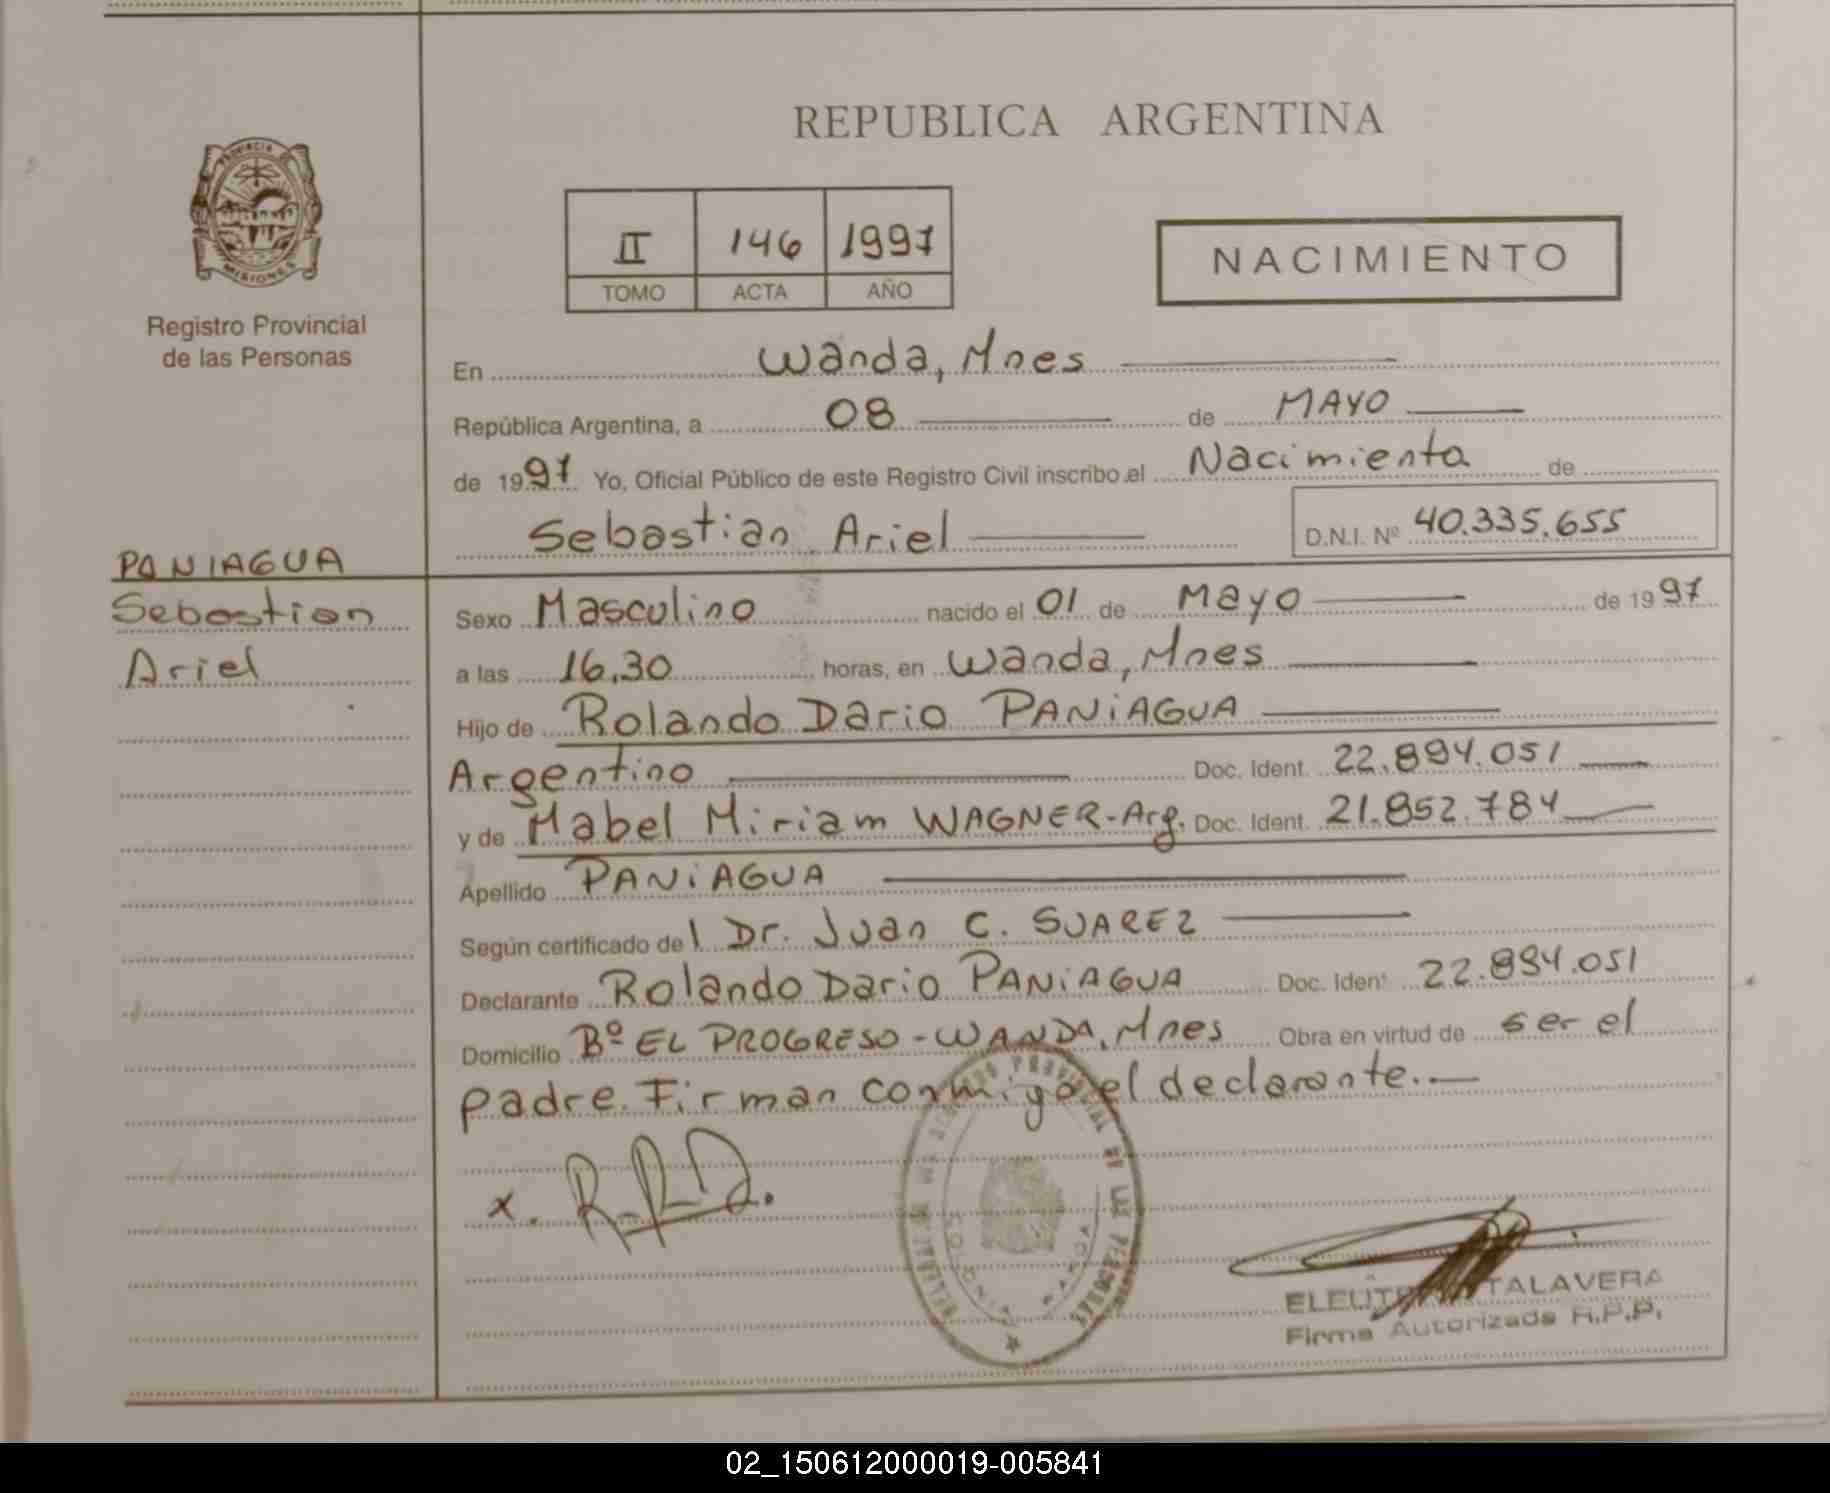 REPUBLICA ARGENTINA
PROVINCIA DE
MISIONES
Registro Provincial
de las Personas
II 146 1997
TOMO ACTA AÑO
NACIMIENTO
En Wanda, Mnes
República Argentina, a 08 de MAYO
de 1997 Yo, Oficial Público de este Registro Civil inscribo el Nacimiento de
Sebastian Ariel D.N.I. Nº 40.335.655
PANIAGUA
Sebastian
Ariel
Sexo Masculino nacido el 01 de Mayo de 1997
a las 16,30 horas, en Wanda, Mnes
Hijo de Rolando Dario PANIAGUA
Argentino Doc. Ident. 22.894.051
y de Mabel Miriam WAGNER-Arg. Doc. Ident. 21.852.784
Apellido PANIAGUA
Según certificado del Dr. Juan C. SUAREZ
Declarante Rolando Dario PANIAGUA Doc. Ident 22.894.051
Domicilio Bº EL PROGRESO - WANDA, Mnes Obra en virtud de ser el
padre. Firman conmigo el declarante.
x.
PROVINCIAL DE LAS PERSONAS
COLONIA WANDA
TALAVERA
Firma Autorizada R.P.P.
02_150612000019-005841